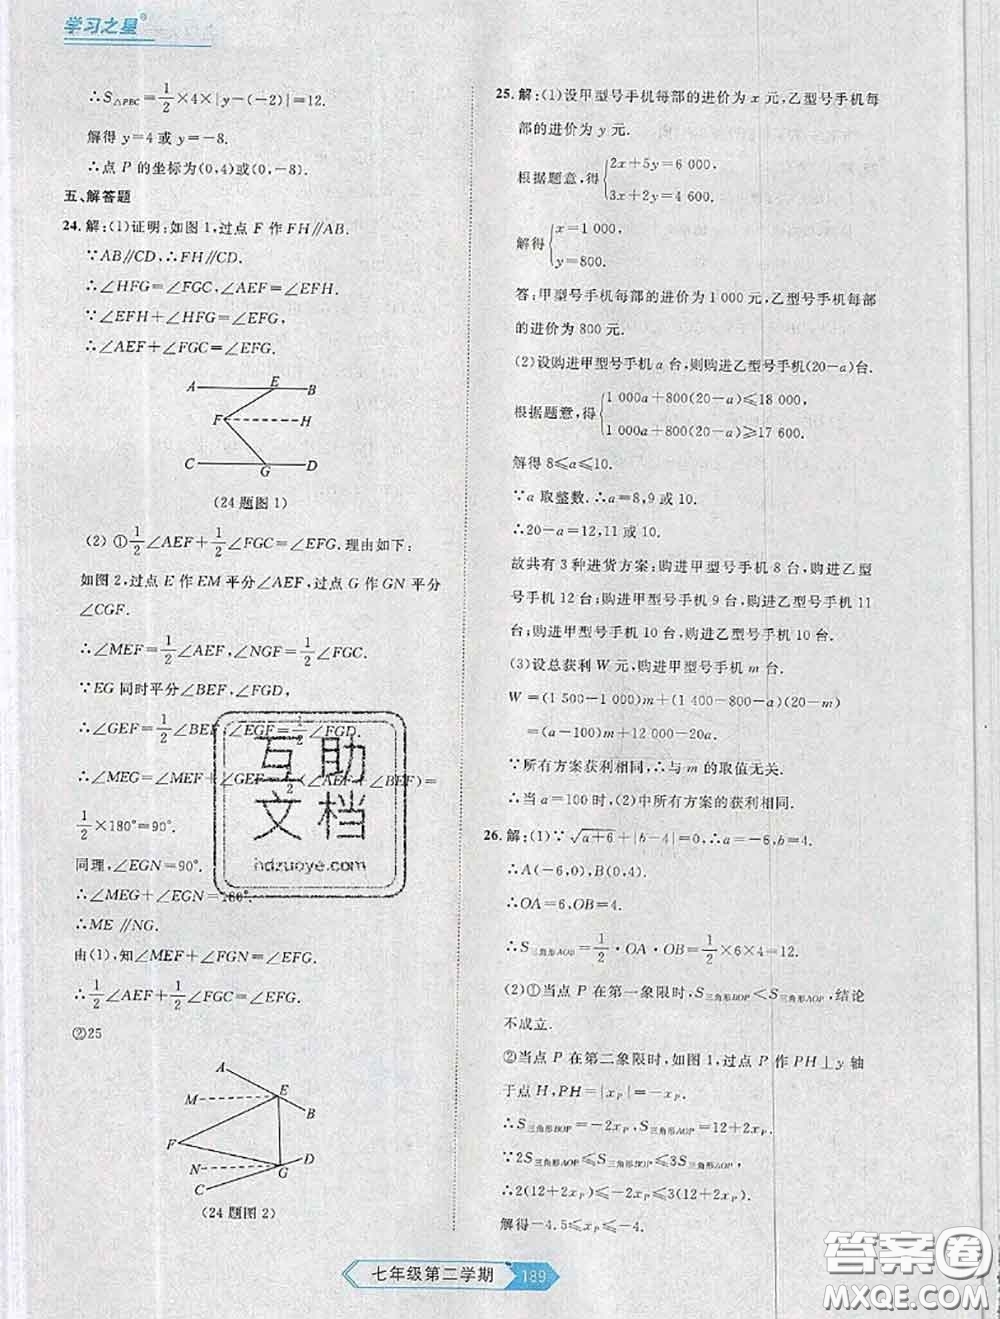 学习之星®
∴S△PBC=1/2×4×|y-(-2)|=12.
解得 y=4或y=-8.
∴点 P 的坐标为(0,4)或(0,-8).
五、解答题
24.解:(1)证明:如图1,过点 F 作 FH∥AB.
∵AB∥CD,∴FH∥CD.
∴∠HFG=∠FGC,∠AEF=∠EFH.
∵∠EFH+∠HFG=∠EFG,
∴∠AEF+∠FGC=∠EFG.
A E B
F H
C G D
(24题图1)
(2) ①1/2∠AEF+1/2∠FGC=∠EFG.理由如下:
如图2,过点 E 作 EM 平分∠AEF,过点 G 作 GN 平分
∠CGF.
∴∠MEF=1/2∠AEF,∠NGF=1/2∠FGC.
∵EG 同时平分∠BEF,∠FGD,
∴∠GEF=1/2∠BEF,∠EGF=1/2∠FGD.
∴∠MEG=∠MEF+∠GEF=1/2(∠AEF+∠BEF)=
1/2×180°=90°.
同理,∠EGN=90°.
∴∠MEG+∠EGN=180°.
∴ME∥NG.
由(1),知∠MEF+∠FGN=∠EFG.
∴1/2∠AEF+1/2∠FGC=∠EFG.
②25
A
M E
B
F
N G D
C
(24题图2)
25.解:(1)设甲型号手机每部的进价为 x 元,乙型号手机每
部的进价为 y 元.
根据题意,得{2x+5y=6 000,
3x+2y=4 600,
解得{x=1 000,
y=800.
答:甲型号手机每部的进价为1 000元,乙型号手机每部
的进价为 800 元.
(2)设购进甲型号手机 a 台,则购进乙型号手机(20-a)台.
根据题意,得{1 000a+800(20-a)≤18 000,
1 000a+800(20-a)≥17 600.
解得 8≤a≤10.
∵a 取整数.∴a=8,9或10.
∴20-a=12,11或10.
故共有3种进货方案:购进甲型号手机8台,购进乙型
号手机12台;购进甲型号手机9台,购进乙型号手机11
台;购进甲型号手机10台,购进乙型号手机10台.
(3)设总获利 W 元,购进甲型号手机 m 台.
W=(1 500-1 000)m+(1 400-800-a)(20-m)
=(a-100)m+12 000-20a.
∵所有方案获利相同,∴与 m 的取值无关.
∴当 a=100时,(2)中所有方案的获利相同.
26.解:(1)∵√(a+6)+|b-4|=0,∴a=-6,b=4.
∴A(-6,0),B(0,4).
∴OA=6,OB=4.
∴S三角形AOB=1/2·OA·OB=1/2×6×4=12.
(2)①当点 P 在第一象限时,S三角形BOP<S三角形AOP,结论
不成立.
②当点 P 在第二象限时,如图1,过点 P 作 PH⊥y 轴
于点 H,PH=|xP|=-xP.
∴S三角形BOP=-2xP,S三角形AOP=12+2xP.
∵2S三角形AOP≤S三角形BOP≤3S三角形AOP,
∴2(12+2xP)≤-2xP≤3(12+2xP).
解得-4.5≤xP≤-4.
七年级第二学期 189
互助文档
hdzuoye.com
答案圈
MXQE.COM